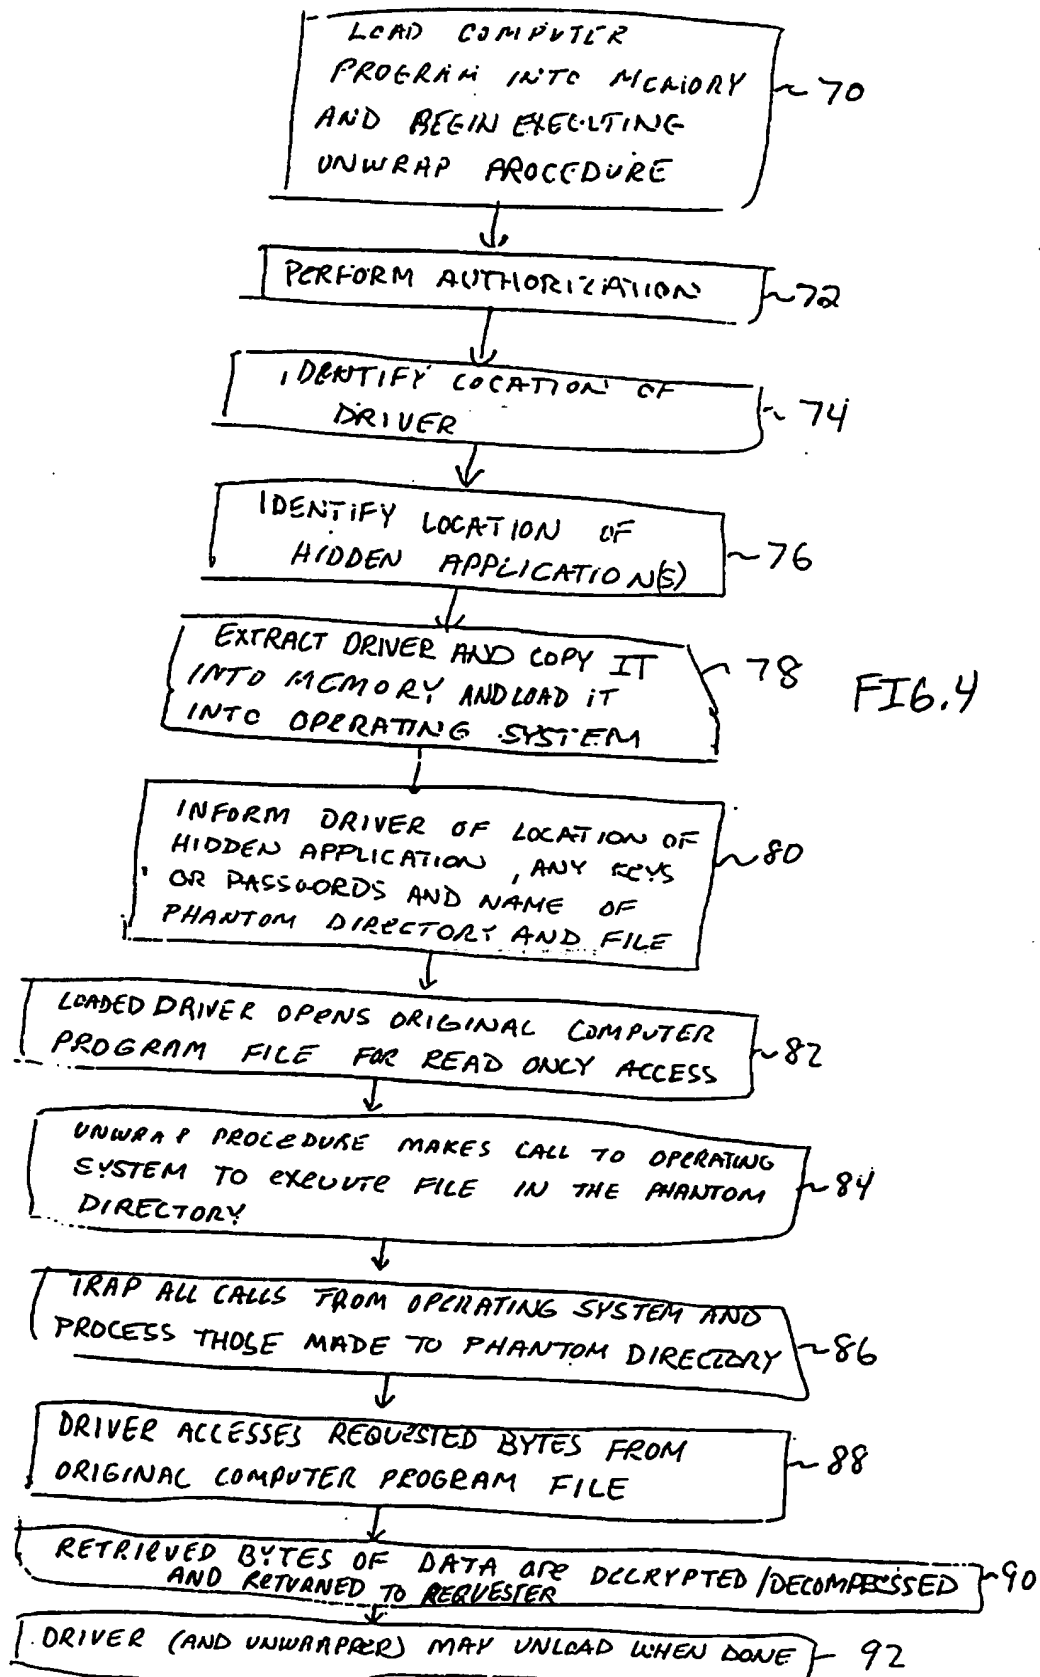 LOAD COMPUTER
PROGRAM INTO MEMORY
AND BEGIN EXECUTING
UNWRAP PROCEDURE
70
PERFORM AUTHORIZATION
72
IDENTIFY LOCATION OF
DRIVER
74
IDENTIFY LOCATION OF
HIDDEN APPLICATION(S)
76
EXTRACT DRIVER AND COPY IT
INTO MEMORY AND LOAD IT
INTO OPERATING SYSTEM
78
FIG.4
INFORM DRIVER OF LOCATION OF
HIDDEN APPLICATION, ANY KEYS
OR PASSWORDS AND NAME OF
PHANTOM DIRECTORY AND FILE
80
LOADED DRIVER OPENS ORIGINAL COMPUTER
PROGRAM FILE FOR READ ONLY ACCESS
82
UNWRAP PROCEDURE MAKES CALL TO OPERATING
SYSTEM TO EXECUTE FILE IN THE PHANTOM
DIRECTORY
84
TRAP ALL CALLS FROM OPERATING SYSTEM AND
PROCESS THOSE MADE TO PHANTOM DIRECTORY
86
DRIVER ACCESSES REQUESTED BYTES FROM
ORIGINAL COMPUTER PROGRAM FILE
88
RETRIEVED BYTES OF DATA ARE DECRYPTED/DECOMPESSED
AND RETURNED TO REQUESTER
90
DRIVER (AND UNWRAPPER) MAY UNLOAD WHEN DONE
92